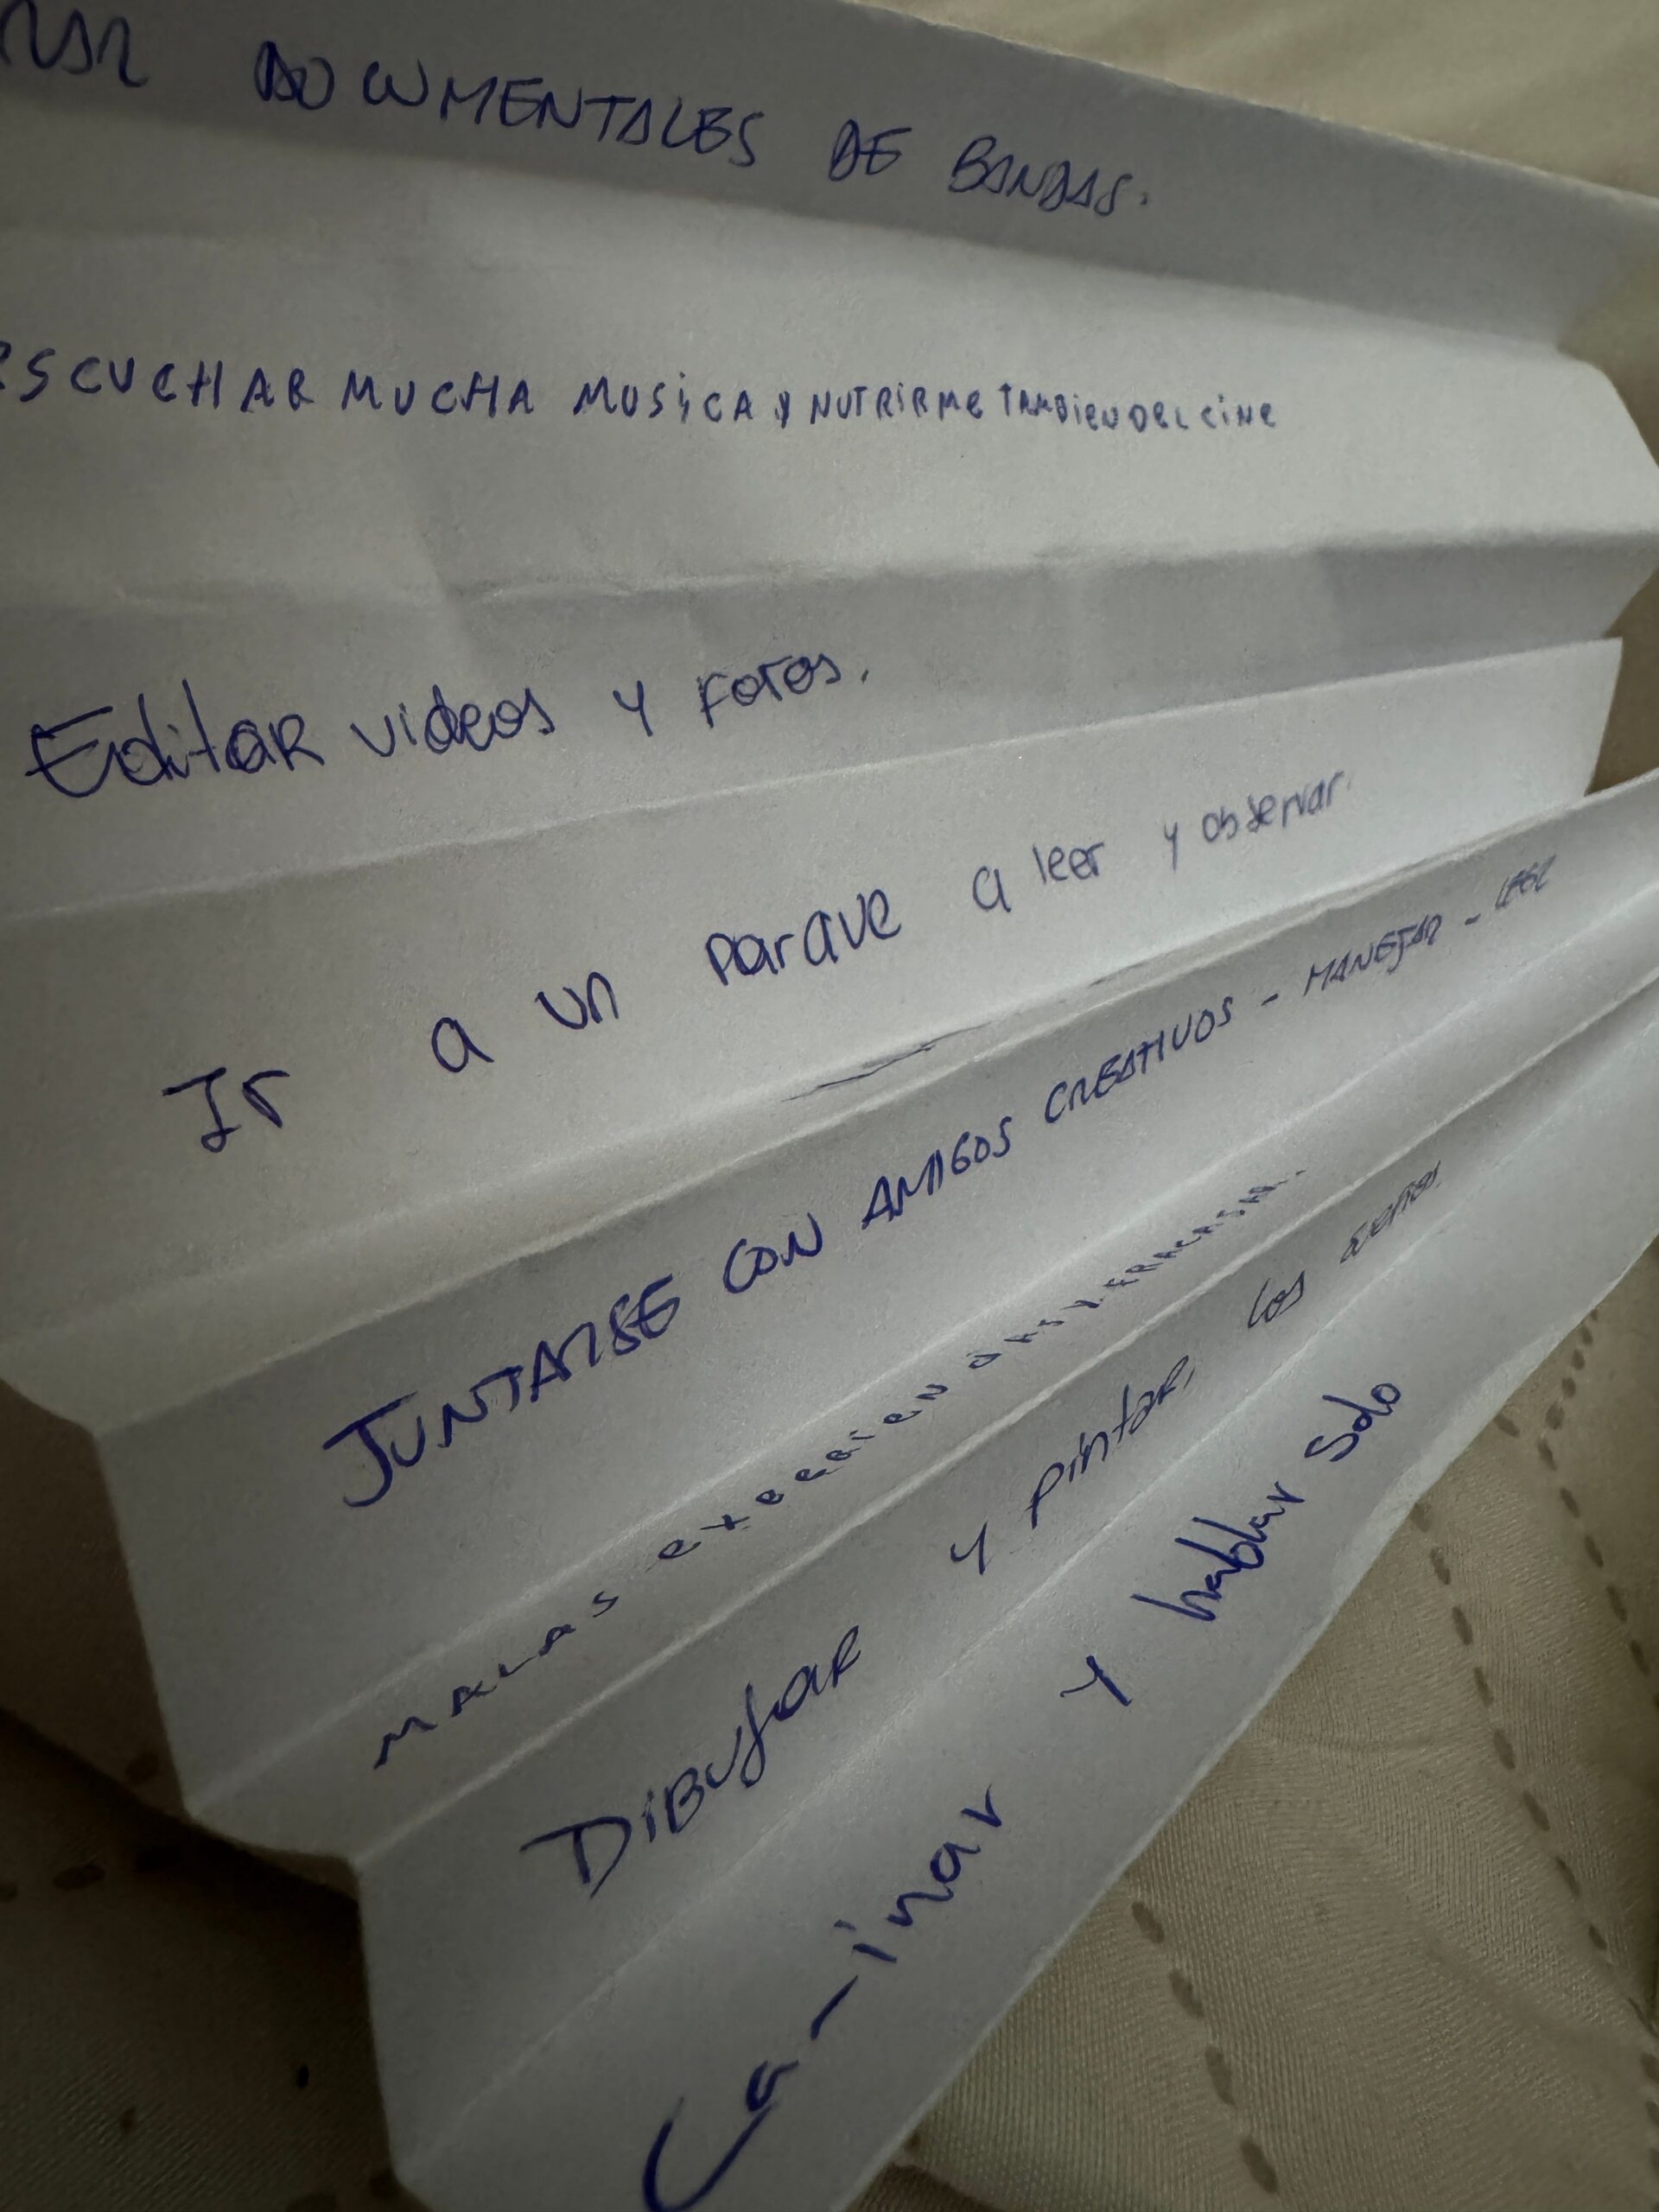 DOCUMENTALES DE BANDAS.
ESCUCHAR MUCHA MUSICA Y NUTRIRME TAMBIEN DEL CINE
Editar videos y fotos.
Ir a un parque a leer y observar.
JUNTARSE CON AMIGOS CREATIVOS - MANEJAR - LEER
MALAS experiencias y FRACASAR.
DIBUJAR y pintar los
Caminar y hablar solo